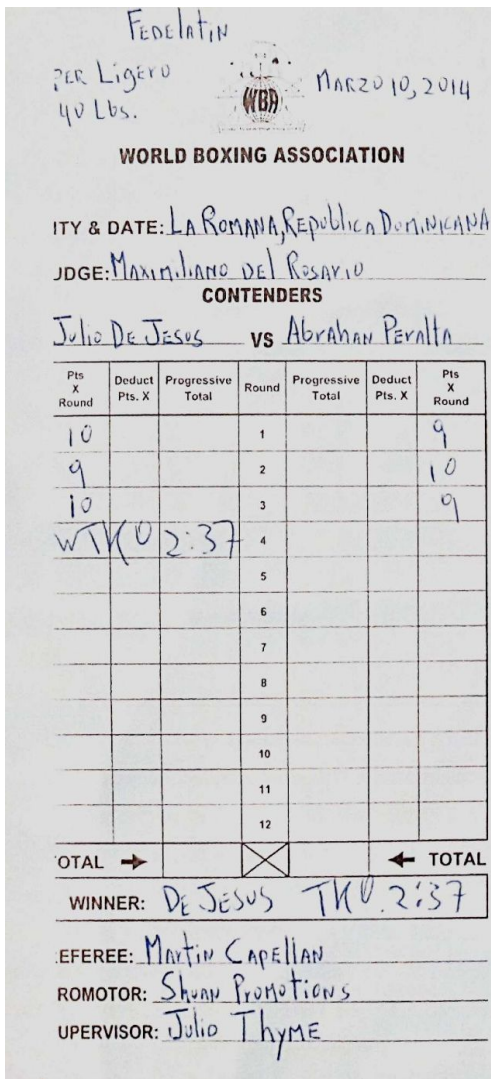 FEDELATIN
PER LIGERO
40 Lbs.
WBA
MARZO 10, 2014
WORLD BOXING ASSOCIATION
ITY & DATE: LA ROMANA, REPUBLICA DOMINICANA
UDGE: MAXIMILIANO DEL ROSARIO
CONTENDERS
Julio DE JESUS VS Abrahan Peralta
Pts X Round Deduct Pts. X Progressive Total Round Progressive Total Deduct Pts. X Pts X Round
10 1 9
9 2 10
10 3 9
WTKO 2:37 4
5
6
7
8
9
10
11
12
OTAL TOTAL
WINNER: DE JESUS TKO. 2:37
EFEREE: Martin CAPELLAN
ROMOTOR: Shuan Promotions
UPERVISOR: Julio ThyME